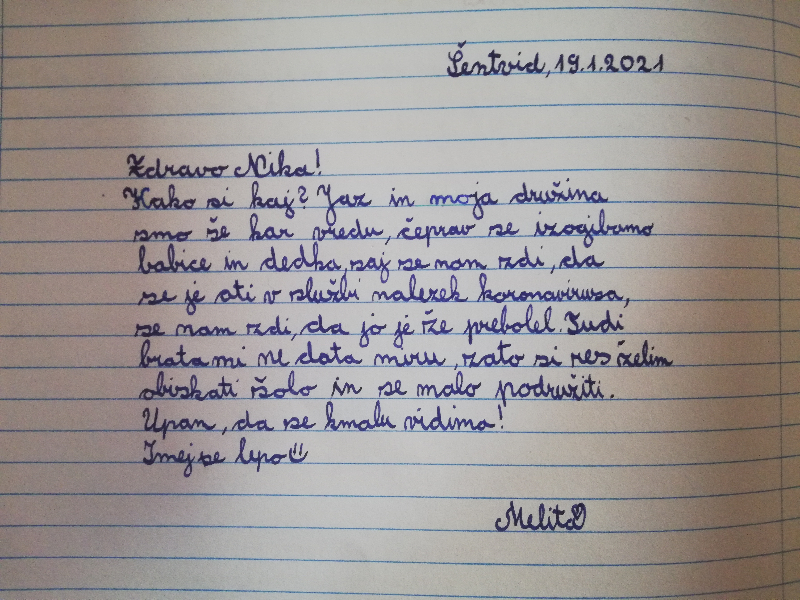 Šentvid, 19.1.2021
Zdravo Nika!
Kako si kaj? Jaz in moja družina
smo še kar vredu, čeprav se izogibamo
babice in dedka, saj se nam zdi, da
se je ati v službi nalezek koronavirusa,
se nam zdi, da jo je že prebolel. Tudi
brata mi ne data miru, zato si res želim
obiskati šolo in se malo podružiti.
Upam, da se kmalu vidimo!
Imej se lepo☺
Melita